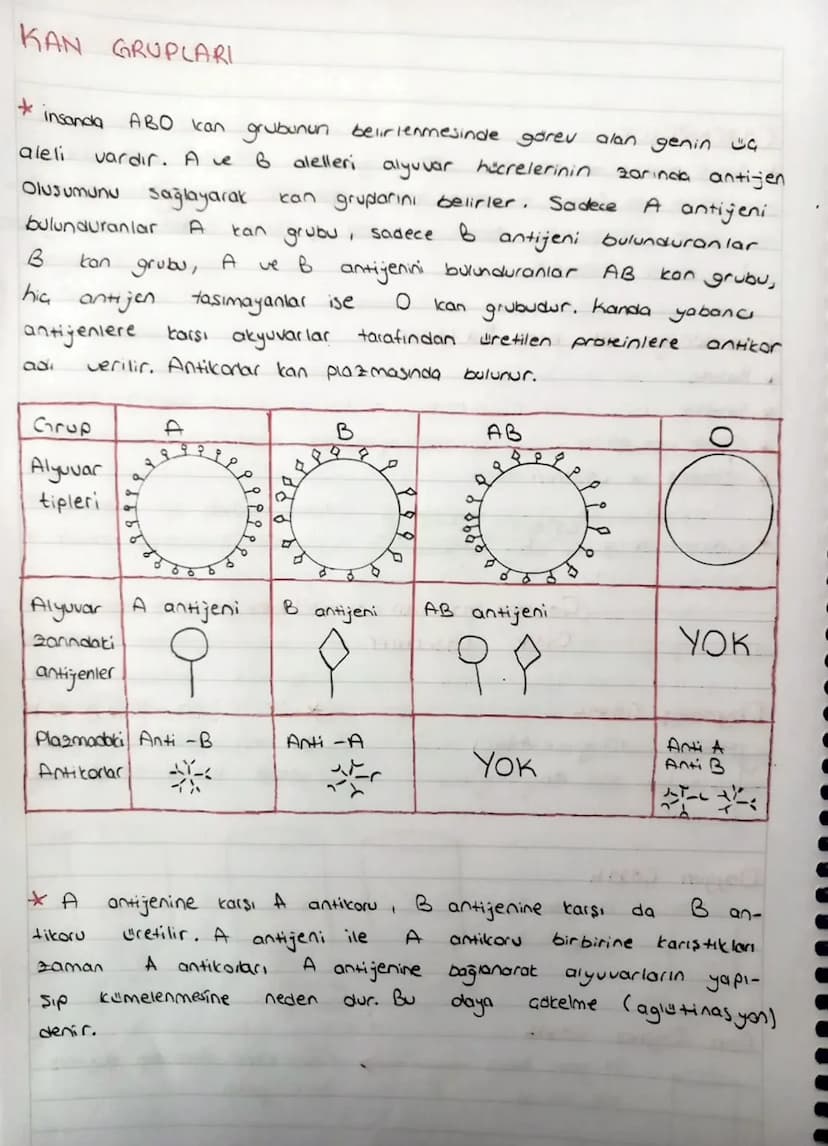 KAN GRUPLARI
* insanda ABO kan grubunun belirlenmesinde görev alan genin üç
aleli vardır. A ve B alelleri alyuvar hücrelerinin zarında antijen
oluşumunu sağlayarak kan gruplarını belirler. Sadece A antijeni
bulunduranlar A kan grubu, sadece B antijeni bulunduranlar
B kan grubu, A ve B antijenini bulunduranlar AB kan grubu,
hiç antijen taşımayanlar ise O kan grubudur. Kanda yabancı
antijenlere karşı akyuvarlar tarafından üretilen proteinlere antikor
adı verilir. Antikorlar kan plazmasında bulunur.
Grup A B AB O
Alyuvar
tipleri
Alyuvar A antijeni B antijeni AB antijeni
zarındaki YOK
antijenler
Plazmadaki Anti -B Anti -A YOK Anti A
Antikorlar Anti B
* A antijenine karşı A antikoru, B antijenine karşı da B an-
tikoru üretilir. A antijeni ile A antikoru birbirine karıştıkları
zaman A antikorları A antijenine bağlanarak alyuvarların yapı-
şıp kümelenmesine neden dur. Bu daya çökelme (aglütinasyon)
denir.